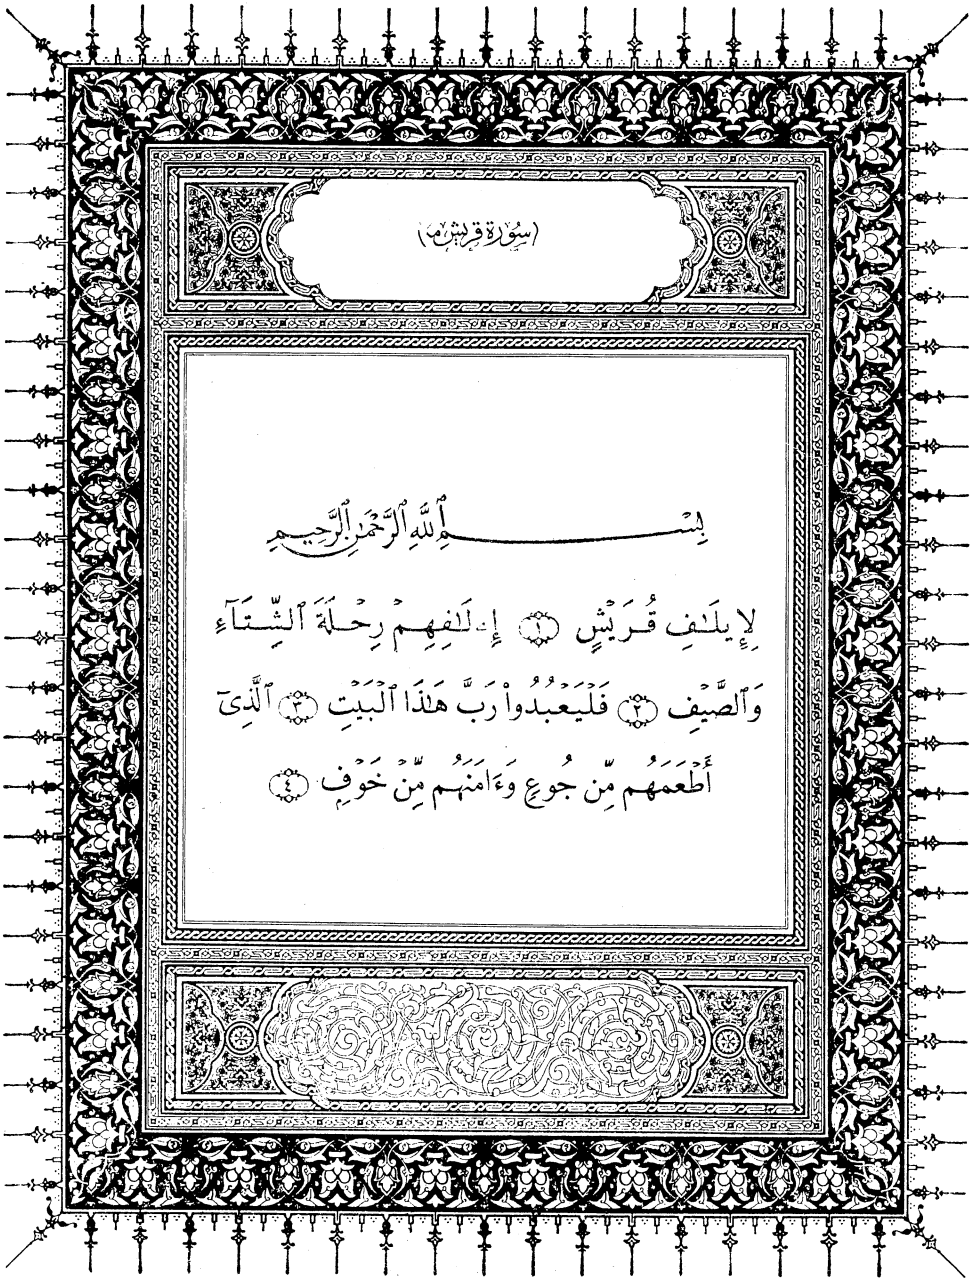 (سُورَة قُرَيْش)
بِسْمِ ٱللَّهِ ٱلرَّحْمَـٰنِ ٱلرَّحِيمِ
لِإِيلَـٰفِ قُرَيْشٍ ١ إِۦلَـٰفِهِمْ رِحْلَةَ ٱلشِّتَآءِ
وَٱلصَّيْفِ ٢ فَلْيَعْبُدُوا۟ رَبَّ هَـٰذَا ٱلْبَيْتِ ٣ ٱلَّذِىٓ
أَطْعَمَهُم مِّن جُوعٍ وَءَامَنَهُم مِّنْ خَوْفٍۭ ٤